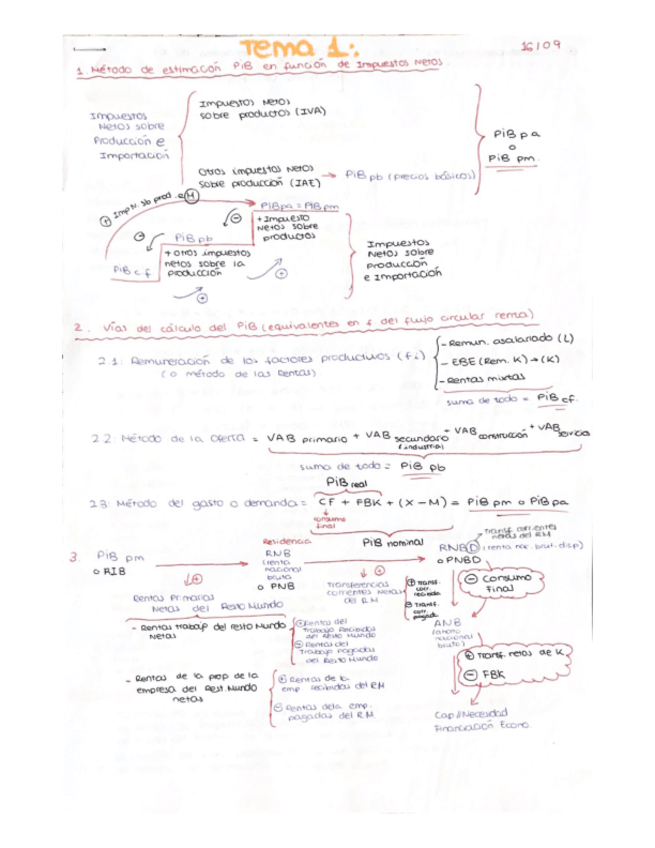 Tema 1:
16/09
1. Método de estimación PiB en función de Impuestos Netos.
Impuestos
Netos sobre
Producción e
Importación
Impuestos Netos
sobre productos (IVA)
Otros impuestos Netos
sobre producción (IAE)
PiB pb (precios básicos)
PiB pa
o
PiB pm.
+ Imp N. sb prod. e M
PiB pa = PiB pm
PiB pb
PiB c.f
+ Impuesto
Netos sobre
productos
+ otros impuestos
netos sobre la
producción
Impuestos
Netos sobre
producción
e Importación
2. Vías del cálculo del PiB (equivalentes en f. del flujo circular renta)
2.1: Remuneración de los factores productivos (f i)
(o método de las Rentas)
- Remun. asalariado (L)
- EBE (Rem. K) → (K)
- Rentas mixtas
suma de todo = PiB cf.
2.2: Método de la Oferta = VAB primario + VAB secundario + VAB construcción + VAB servicios
f.industrial
suma de todo = PiB pb
PiB real
2.3: Método del gasto o demanda = CF + FBK + (X-M) = PiB pm o PiB pa
consumo
final
PiB nominal
3.
PiB pm
o RIB
Residencia
RNB
(renta
nacional
bruta
o PNB
Transf. corrientes
netas del RM
RNBD (renta nac. brut. disp)
o PNBD
Rentas Primarias
Netas del Resto Mundo
Transferencias
corrientes Netas
del R.M
+ Transf.
corr.
recibida
- Transf.
corr.
pagada
- Consumo
Final
ANB
(ahorro
nacional
bruto)
- Rentas trabajo del resto Mundo
Netas
+ Rentas del
Trabajo Recibidas
del Resto Mundo
- Rentas del
Trabajo pagadas
del Resto Mundo
+ Transf. netas de K
- FBK
- Rentas de la prop de la
empresa del Rest. Mundo
netas
+ Rentas de la
emp. recibidas del RM
- Rentas dela emp.
pagadas del RM
Cap//Necesidad
Financiación Econo.